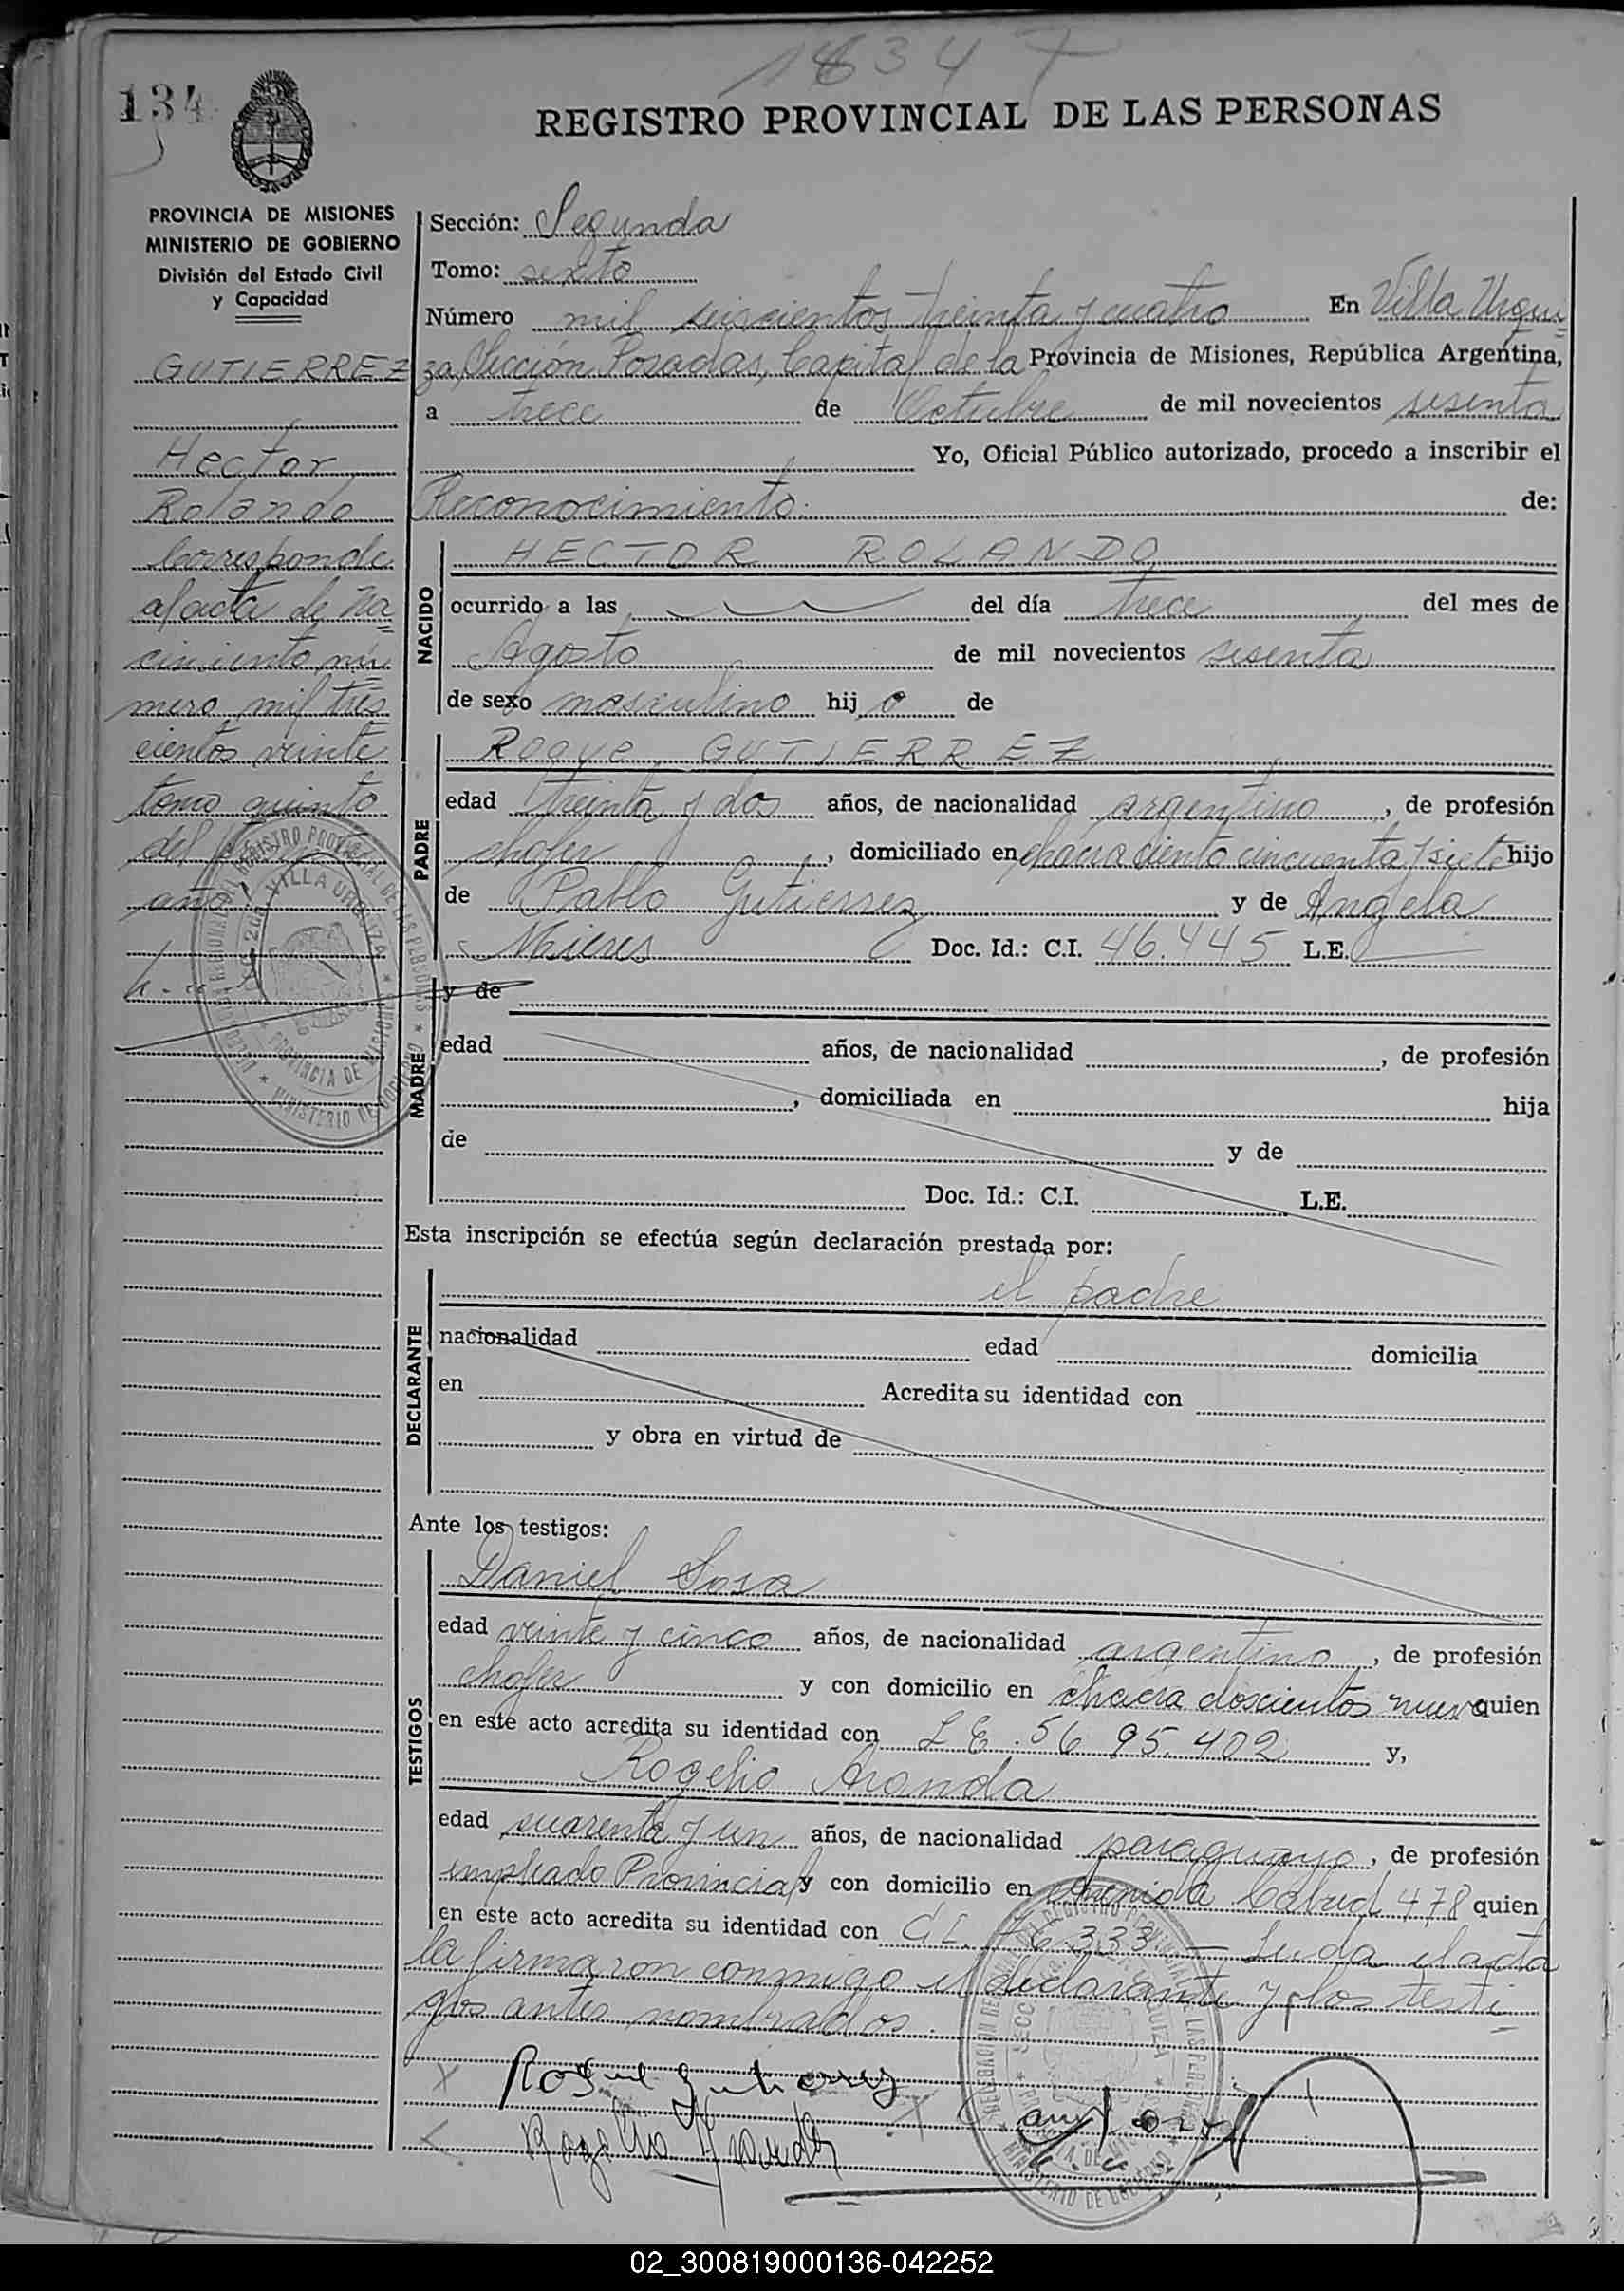 134
REGISTRO PROVINCIAL DE LAS PERSONAS
PROVINCIA DE MISIONES
MINISTERIO DE GOBIERNO
División del Estado Civil
y Capacidad
GUTIERREZ
Hector
Rolando
Corresponde
al acta de Na
cimiento nú
mero mil tres
cientos veinte
tomo quinto
del
año
Sección: Segunda
Tomo: sexto
Número mil seiscientos treinta y cuatro En Villa Urqui
za, Sección Posadas, Capital de la Provincia de Misiones, República Argentina,
a trece de Octubre de mil novecientos sesenta
Yo, Oficial Público autorizado, procedo a inscribir el
Reconocimiento de:
NACIDO
HECTOR ROLANDO
ocurrido a las del día trece del mes de
Agosto de mil novecientos sesenta
de sexo masculino hijo de
PADRE
Roque GUTIERREZ
edad treinta y dos años, de nacionalidad argentino, de profesión
chofer, domiciliado en chacra ciento cincuenta y siete hijo
de Pablo Gutierrez y de Angela
Mieres Doc. Id.: C.I. 46.445 L.E.
MADRE
y de
edad años, de nacionalidad , de profesión
, domiciliada en hija
de y de
Doc. Id.: C.I. L.E.
Esta inscripción se efectúa según declaración prestada por:
DECLARANTE
el padre
nacionalidad edad domicilia
en Acredita su identidad con
y obra en virtud de
Ante los testigos:
TESTIGOS
Daniel Sosa
edad veinte y cinco años, de nacionalidad argentino, de profesión
chofer y con domicilio en chacra doscientos nueve quien
en este acto acredita su identidad con L E. 56 95.402 y,
Rogelio Aranda
edad cuarenta y un años, de nacionalidad paraguayo, de profesión
empleado Provincial y con domicilio en Avenida Cabred 478 quien
en este acto acredita su identidad con 76.333 - Leida el acta
la firmaron conmigo el declarante y los testi
gos antes nombrados.
Roque Gutierrez
Rogelio Aranda
02_300819000136-042252